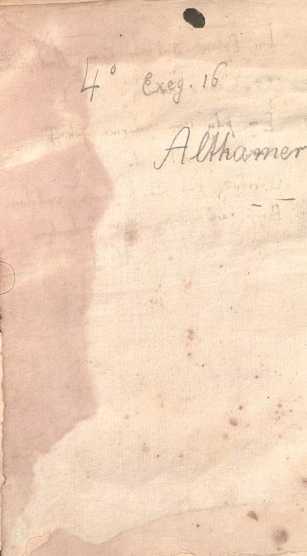 4° Exeg. 16
Althamer